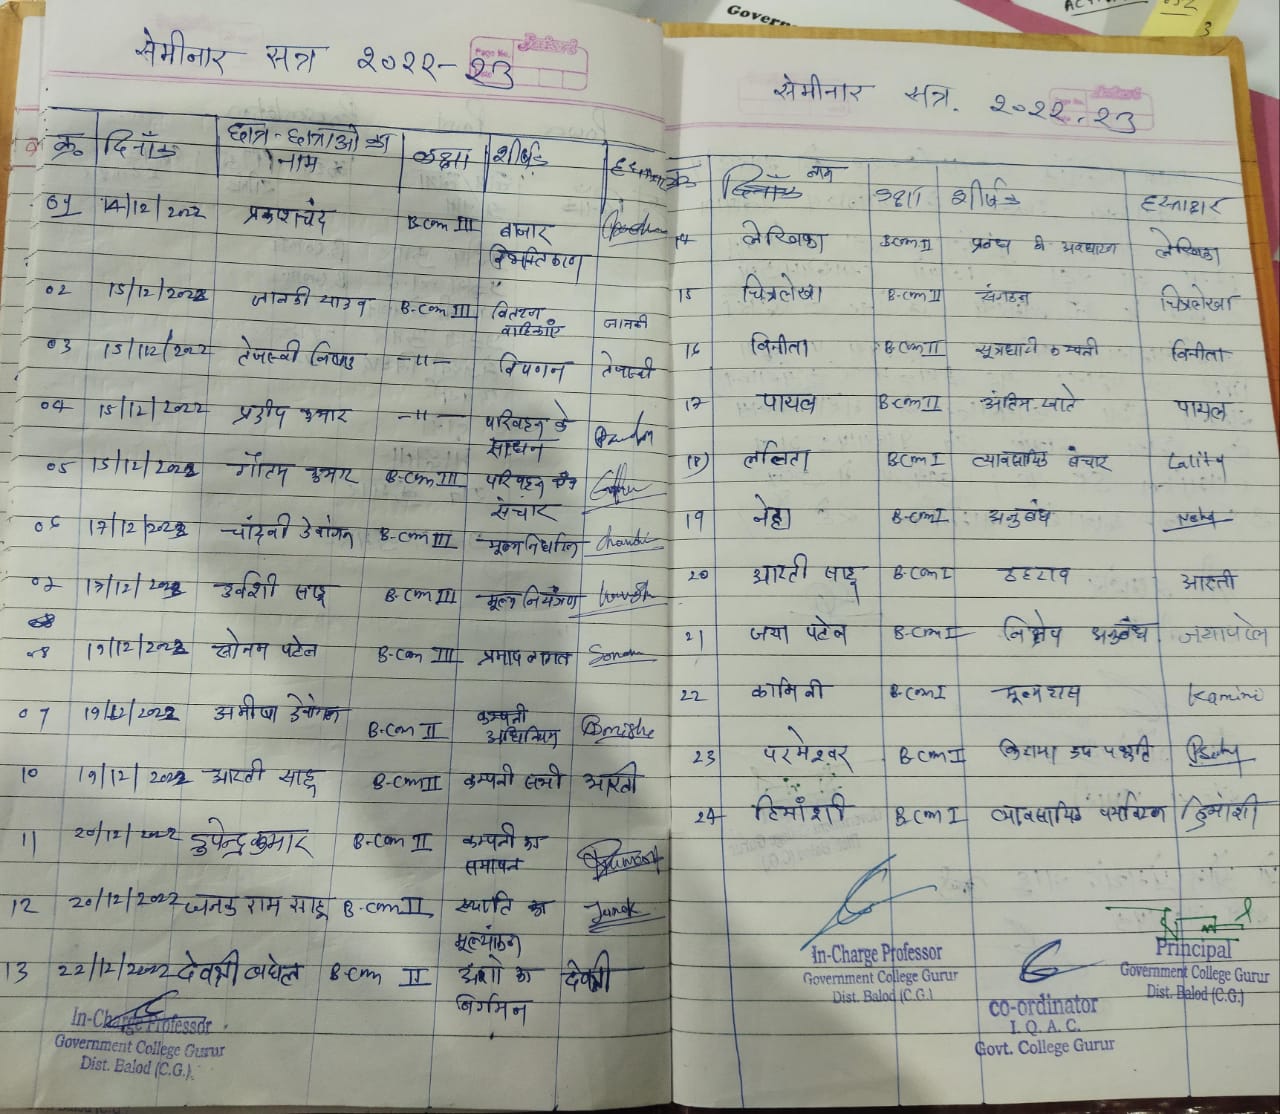 Govern
सेमीनार सत्र २०२२-२३
Page No.
क्र. दिनाँक छात्र-छात्राओं का नाम कक्षा शीर्षक
01 14/12/2022 प्रकाशचंद B.Com III बाजार
02 15/12/2022 जानकी यादव B-Com III वितरण वाहिकाएं जानकी
03 15/12/2022 तेजस्वी निषाद -"- विपणन तेजस्वी
04 15/12/2022 प्रदीप कुमार -"- परिवहन के साधन
05 15/12/2022 गौतम कुमार B-Com III परिवहन संचार
06 17/12/2022 चांदनी देवांगन B-Com III मूल्य निर्धारण Chandni
07 17/12/2022 उर्वशी साहू B-Com III मूल्य नियंत्रण
08 19/12/2022 सोनम पटेल B-Com III प्रमाप लागत Sonam
09 19/12/2022 अमीषा देवांगन B-Com II कम्पनी अधिनियम Amisha
10 19/12/2022 आरती साहू B-Com II कम्पनी आरती
11 20/12/2022 डुपेन्द्र कुमार B-Com II कम्पनी का समापन
12 20/12/2022 जनक राम साहू B-Com II ख्याति का मूल्यांकन Janak
13 22/12/2022 देवश्री बघेल B-Com II अंशो का निर्गमन
In-Charge Professor
Government College Gurur
Dist. Balod (C.G.)
सेमीनार सत्र. २०२२-२३
नाम कक्षा शीर्षक हस्ताक्षर
14 लेखिका B.Com II प्रबंध की अवधारणा लेखिका
15 चित्रलेखा B-Com II संगठन चित्रलेखा
16 विनीता B-Com II सूत्रधारी कम्पनी विनीता
17 पायल B-Com II अंतिम खाते पायल
18 ललिता B-Com I व्यावसायिक संचार Lality
19 नेहा B-Com I अनुबंध Neha
20 आरती साहू B-Com I ठहराव आरती
21 जया पटेल B-Com I निक्षेप अनुबंध जयापटेल
22 कामिनी B-Com I मूल्य ह्रास Kamini
23 परमेश्वर B-Com I किराया क्रय पद्धति
24 हिमांशी B-Com I व्यावसायिक पर्यावरण हिमांशी
In-Charge Professor
Government College Gurur
Dist. Balod (C.G.)
co-ordinator
I. Q. A. C.
Govt. College Gurur
Principal
Government College Gurur
Dist. Balod (C.G.)